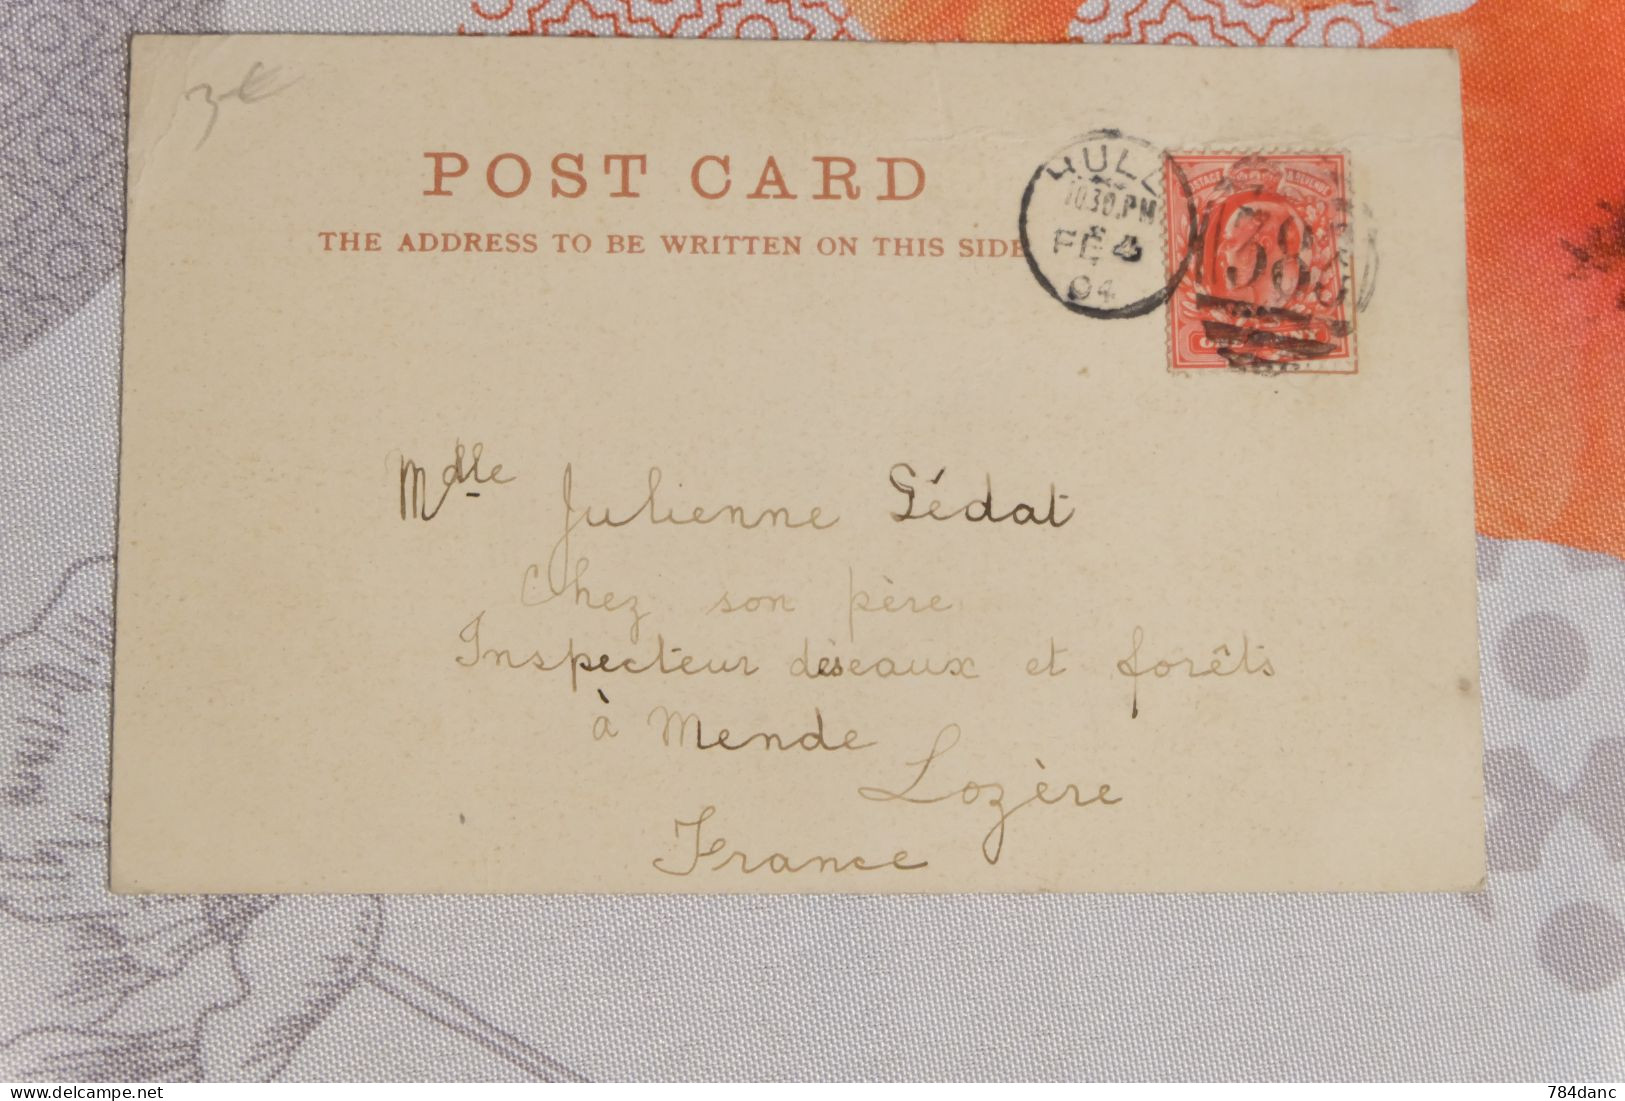 3 €
POST CARD
THE ADDRESS TO BE WRITTEN ON THIS SIDE
HULL
10.30.PM
FE 4
04
POSTAGE & REVENUE
383
ONE PENNY
Mdlle Julienne Gédat
Chez son père
Inspecteur des eaux et forêts
à Mende
Lozère
France
delcampe.net
784danc